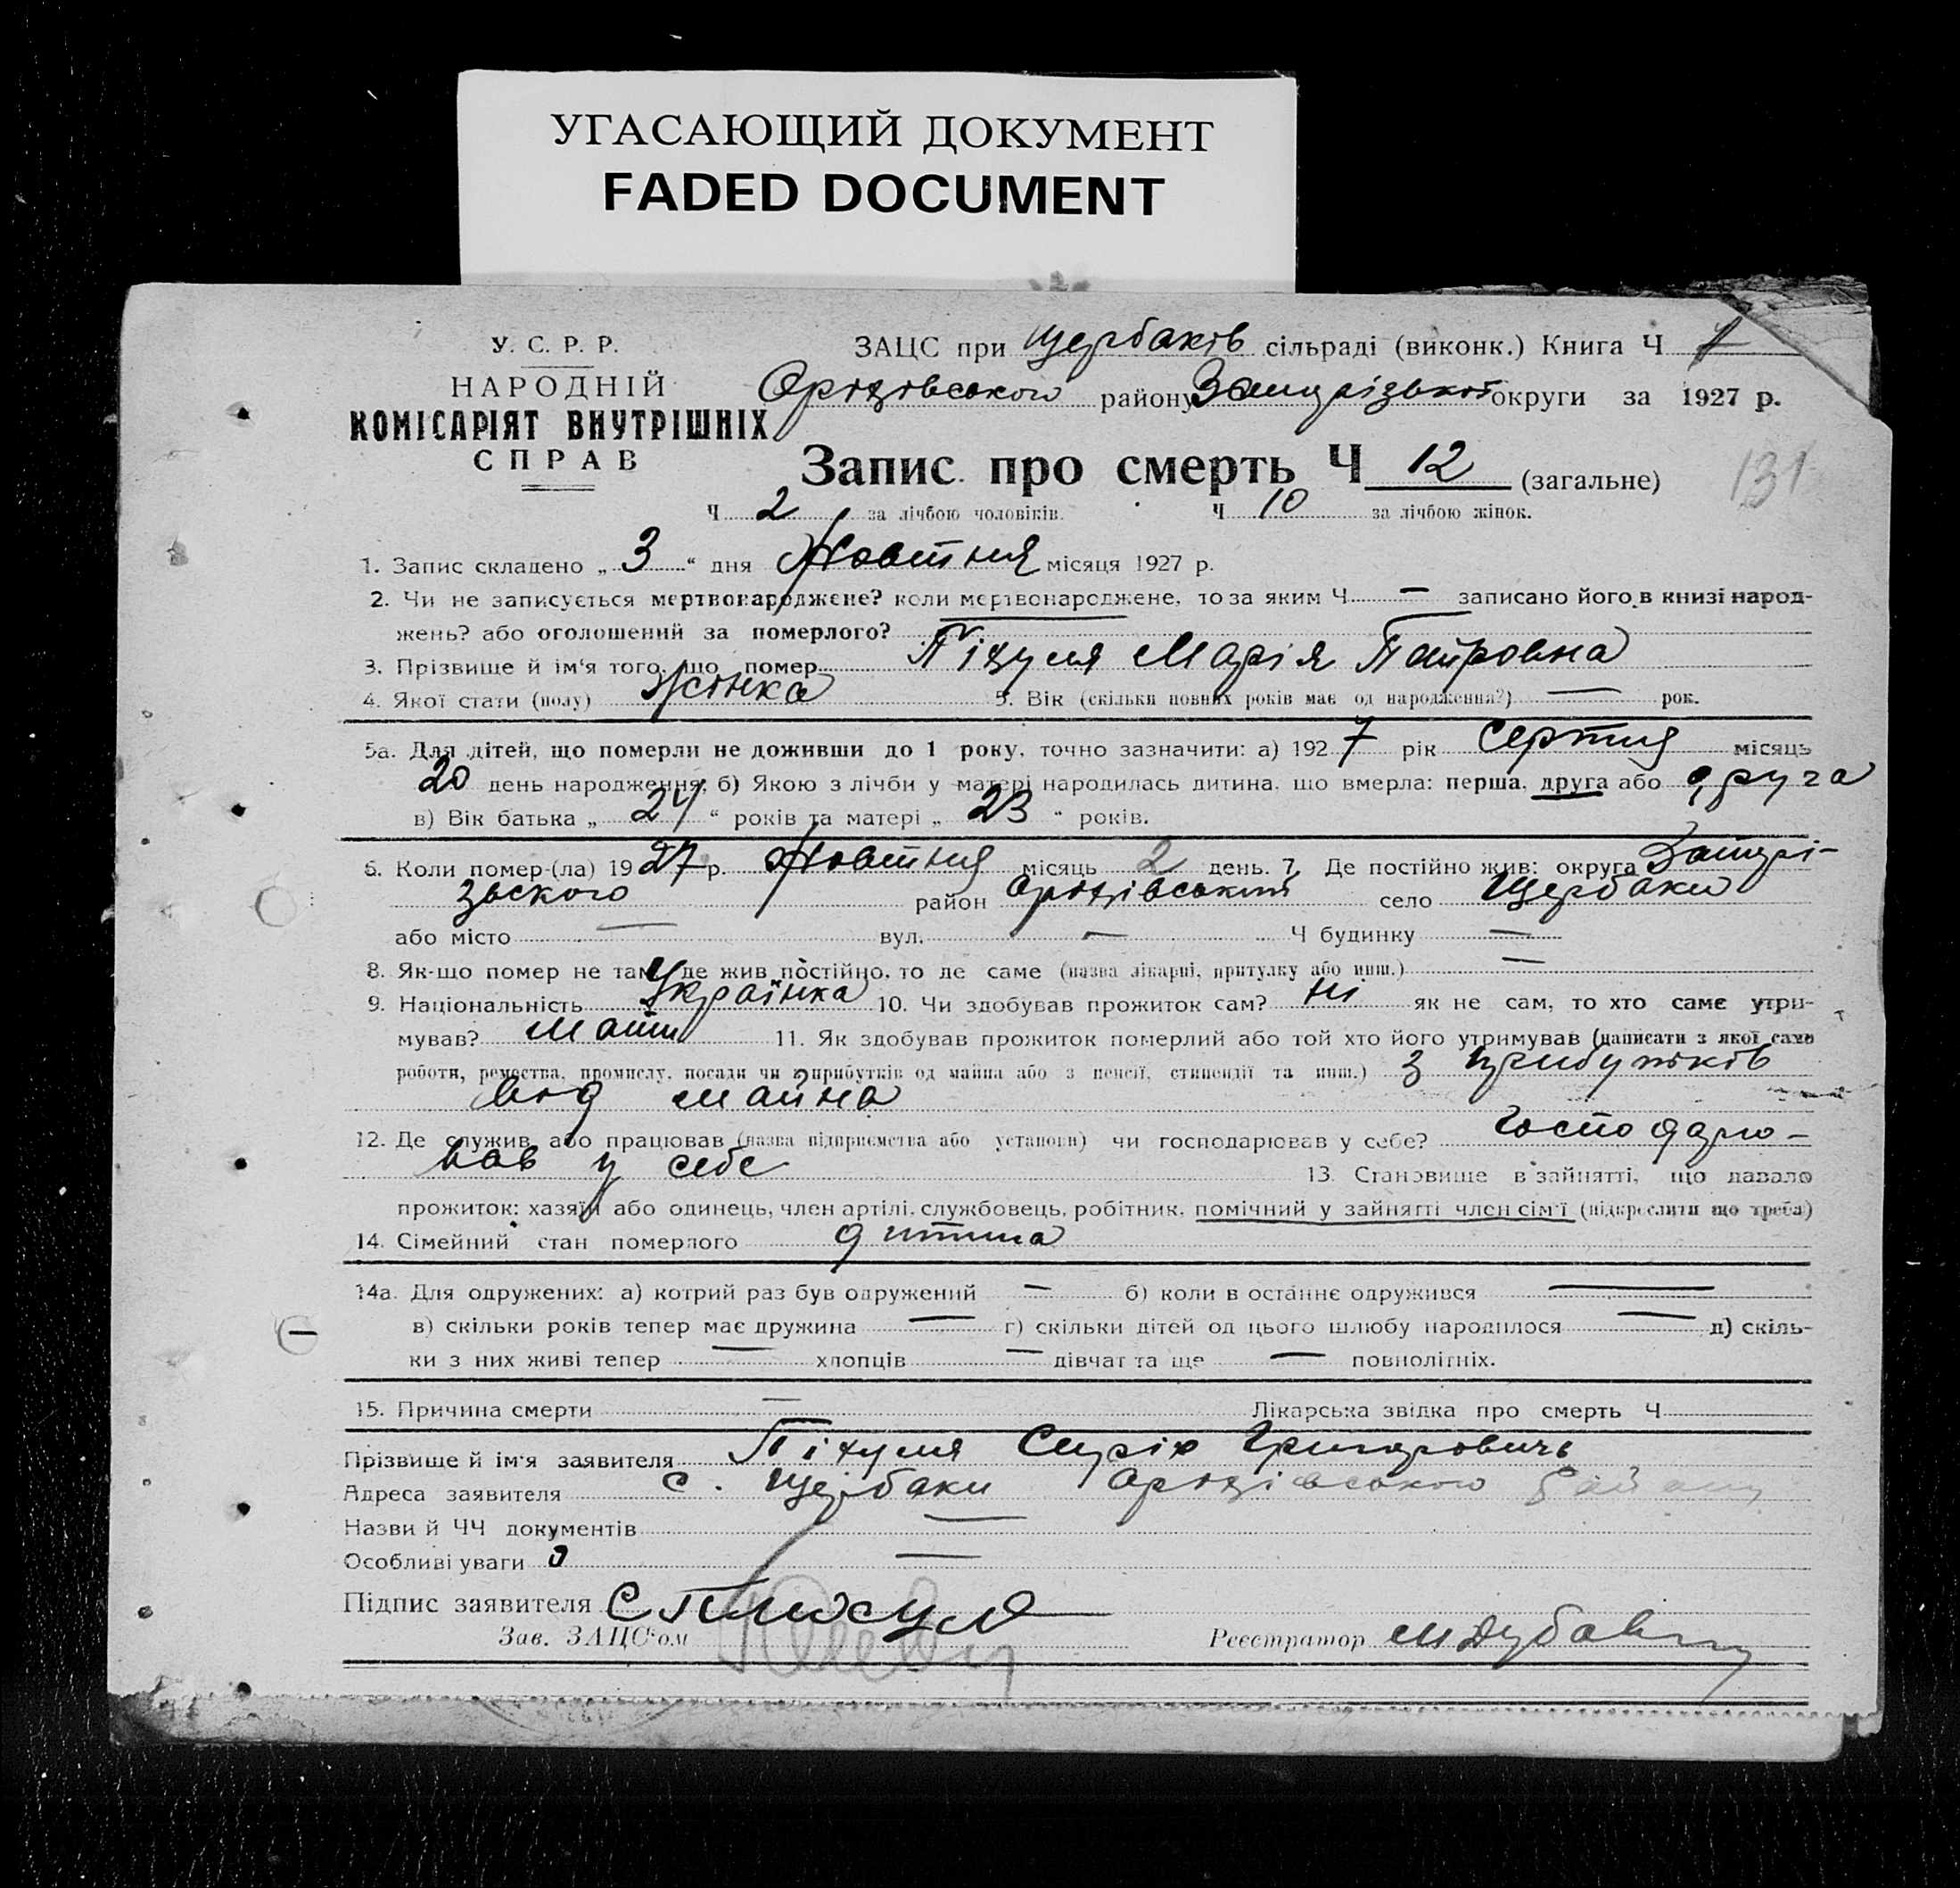 УГАСАЮЩИЙ ДОКУМЕНТ
FADED DOCUMENT
У. С. Р. Р.
НАРОДНІЙ
КОМІСАРІЯТ ВНУТРІШНІХ
СПРАВ
ЗАЦС при Щербаків сільраді (виконк.) Книга Ч
району округи за 1927 р.
Запис про смерть Ч 12 (загальне)
131
Ч 2 за лічбою чоловіків. Ч 10 за лічбою жінок.
1. Запис складено „ 3 “ дня Жовтня місяця 1927 р.
2. Чи не записується мертвонароджене? коли мертвонароджене, то за яким Ч — записано його в книзі народ-
жень? або оголошений за померлого?
3. Прізвище й ім'я того, що помер Марія
4. Якої стати (полу) Жінка 5. Вік (скільки повних років має од народження?) — рок.
5а. Для дітей, що померли не доживши до 1 року, точно зазначити: а) 1927 рік Серпня місяць
20 день народження; б) Якою з лічби у матері народилась дитина, що вмерла: перша, друга або друга
в) Вік батька „ 24 “ років та матері „ 23 “ років.
6. Коли помер-(ла) 1927 р. Жовтня місяць 2 день. 7. Де постійно жив: округа Запорі-
зьского район село Щербаки
або місто — вул. — Ч будинку —
8. Як-що помер не там, де жив постійно, то де саме (назва лікарні, притулку або инш.) —
9. Національність Українка 10. Чи здобував прожиток сам? ні як не сам, то хто саме утри-
мував? Мати 11. Як здобував прожиток померлий або той хто його утримував (написати з якої саме
роботи, ремества, промислу, посади чи з прибутків од майна або з пенсії, стипендії та инш.) З прибутків
від майна
12. Де служив або працював (назва підприємства або установи) чи господарював у себе? Господарю-
вав у себе 13. Становище в зайнятті, що давало
прожиток: хазяїн або одинець, член артілі, службовець, робітник, помічний у зайнятті член сім'ї (підкреслити що треба)
14. Сімейний стан померлого дитина
14а. Для одружених: а) котрий раз був одружений — б) коли в останнє одружився —
в) скільки років тепер має дружина — г) скільки дітей од цього шлюбу народилося — д) скіль-
ки з них живі тепер — хлопців — дівчат та ще — повнолітніх.
15. Причина смерти — Лікарська звідка про смерть Ч
Прізвище й ім'я заявителя Григорович
Адреса заявителя с. Щербаки району
Назви й ЧЧ документів —
Особливі уваги —
Підпис заявителя
Зав. ЗАЦС'ом Реєстратор